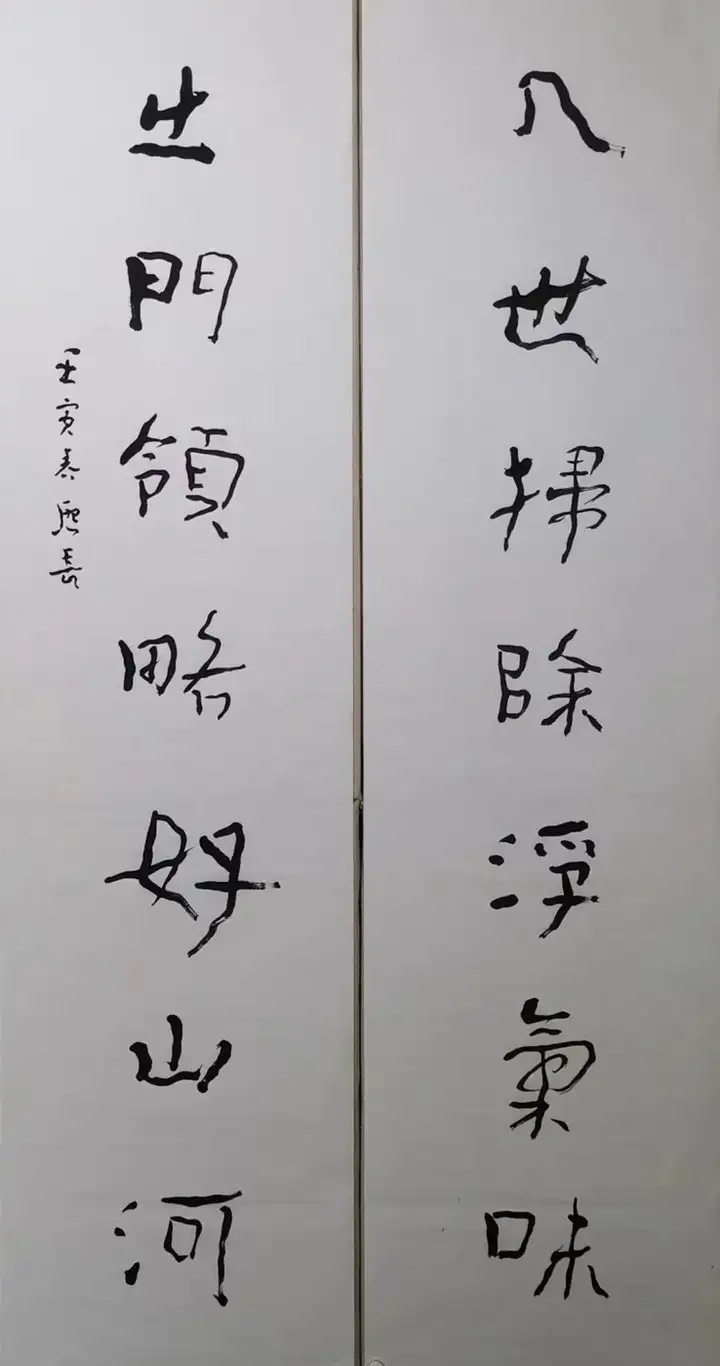 入世掃除浮氣味
出門領略好山河
壬寅春熙長